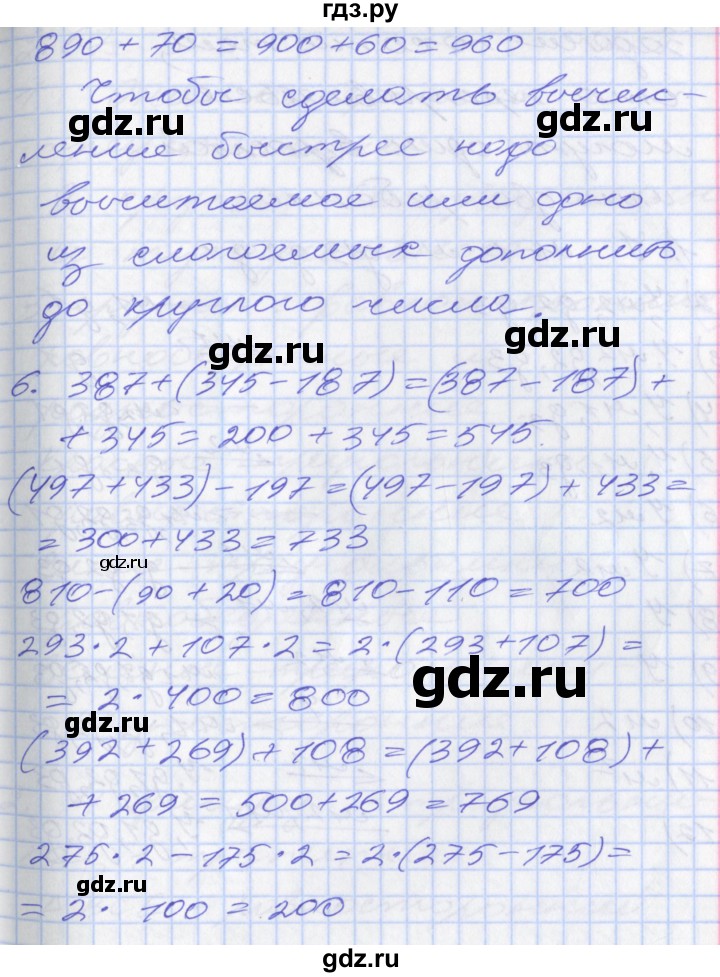 гдз.ру
890 + 70 = 900 + 60 = 960
Чтобы сделать вычис-
gdz.ru gdz.ru
ление быстрее надо
вычитаемое или одно
из слагаемых дополнить
gdz.ru gdz.ru
до круглого числа.
gdz.ru gdz.ru
6. 387 + (345 - 187) = (387 - 187) +
+ 345 = 200 + 345 = 545.
(497 + 433) - 197 = (497 - 197) + 433 =
= 300 + 433 = 733
gdz.ru gdz.ru
810 - (90 + 20) = 810 - 110 = 700
293 · 2 + 107 · 2 = 2 · (293 + 107) =
= 2 · 400 = 800
gdz.ru gdz.ru
(392 + 269) + 108 = (392 + 108) +
+ 269 = 500 + 269 = 769
gdz.ru gdz.ru
275 · 2 - 175 · 2 = 2 · (275 - 175) =
= 2 · 100 = 200
gdz.ru gdz.ru
gdz.ru